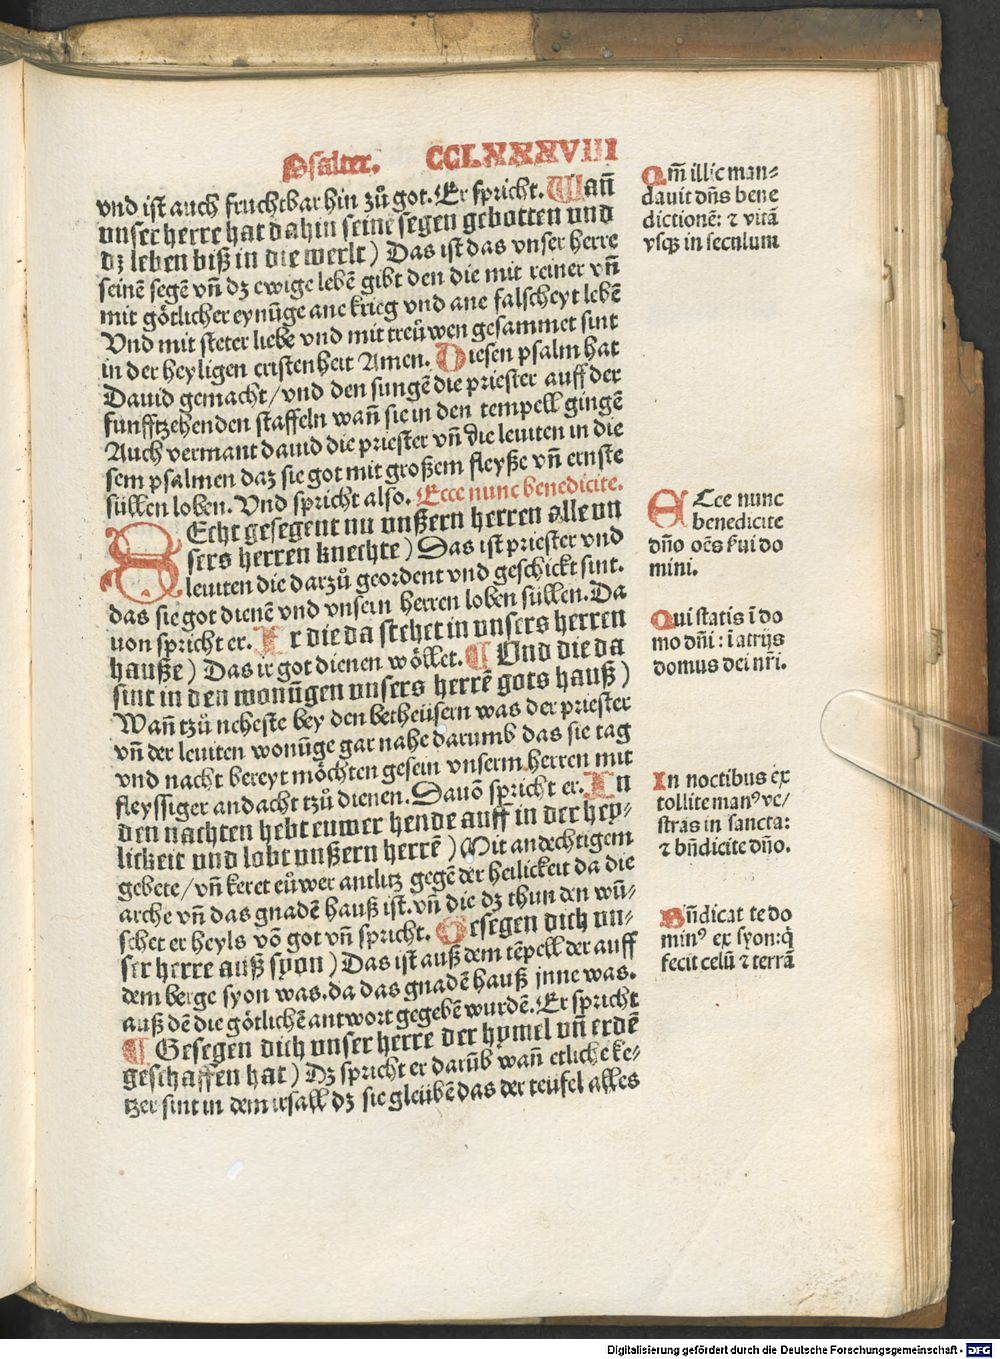 Psalter. CCLXXXVIII
vnd ist auch fruchtbar hin zů got. Er spricht. Wañ
vnser herre hat dahin seine segen gebotten vnd
dʒ leben biß in die werlt) Das ist das vnser herre
seinē segē vñ dʒ ewige lebē gibt den die mit reiner vñ
mit götlicher eynůge ane krieg vnd ane falscheyt lebē
Vnd mit steter liebe vnd mit treůwen gesammet sint
in der heyligen cristenheit Amen. Diesen psalm hat
Dauid gemacht/vnd den sungē die priester auff der
funfftzehenden staffeln wañ sie in den tempell gingē
Auch vermant dauid die priester vñ die leuiten in die
sem psalmen daz sie got mit großem fleyße vñ ernste
süllen loben. Vnd spricht also. Ecce nunc benedicite.
SEcht gesegent nu vnßern herren alle vn
sers herren knechte) Das ist priester vnd
leuiten die darzů geordent vnd geschickt sint.
das sie got dienē vnd vnsern herren loben süllen. Da
uon spricht er. Ir die da stehet in vnsers herren
hauße) Das ir got dienen wöllet. ¶ Vnd die da
sint in den wonūgen vnsers herrē gots hauß)
Wañ tzů neheste bey den betheüsern was der priester
vñ der leuiten wonūge gar nahe darumb das sie tag
vnd nacht bereyt möchten gesein vnserm herren mit
fleyssiger andacht tzů dienen. Dauō spricht er. In
den nachten hebt euwer hende auff in der hey-
lickeit vnd lobt vnßern herrē) Mit andechtigem
gebete/vñ keret eůwer antlitz gegē der heilickeit da die
arche vñ das gnadē hauß ist. vñ die dʒ thun den wū-
schet er heyls vō got vñ spricht. Gesegen dich vn-
ser herre auß syon) Das ist auß dem tēpell der auff
dem berge syon was. da das gnadē hauß jnne was.
auß dē die götlichē antwort gegebē wurdē. Er spricht
¶ Gesegen dich vnser herre der hymel vñ erdē
geschaffen hat) Dʒ spricht er darūb wañ etliche ke-
tzer sint in dem irsall dʒ sie gleübē das der teüfel alles
Qm̄ illic man-
dauit dn̄s bene
dictionē: ⁊ vitā
vsqʒ in seculum
ECce nunc
benedicite
dn̄o oēs ẜui do
mini.
Qui statis ī do
mo dn̄i: ī atrijs
domus dei nr̄i.
In noctibus ex
tollite manꝰ ve/
stras in sancta:
⁊ bn̄dicite dn̄o.
Bn̄dicat te do
minꝰ ex syon: q̇
fecit celū ⁊ terrā
Digitalisierung gefördert durch die Deutsche Forschungsgemeinschaft - DFG